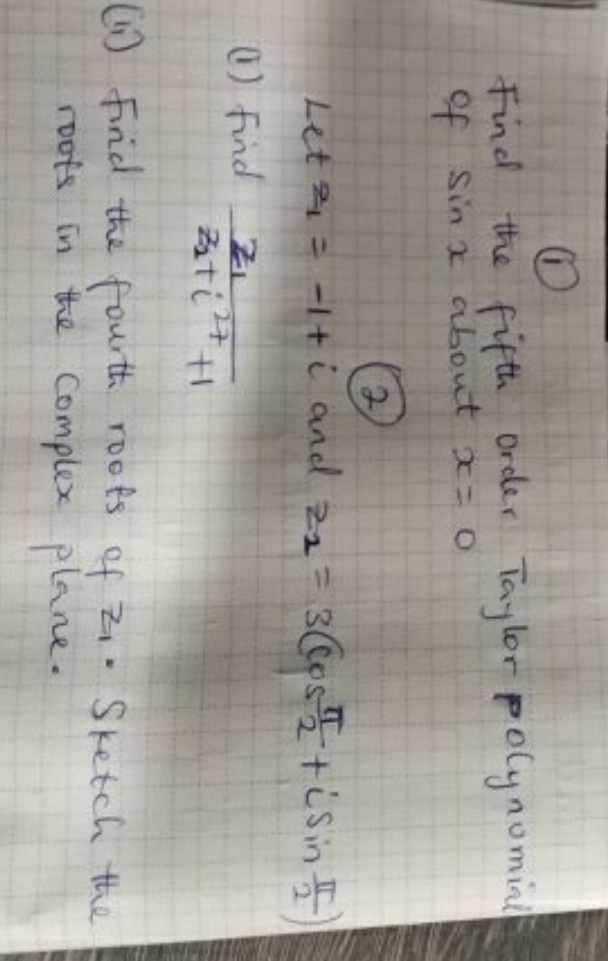 ①
Find the fifth order Taylor polynomial
of sin x about x = 0
②
Let z₁ = -1 + i and z₂ = 3(cos π/2 + i sin π/2)
(i) find z₁/(z₂ + i²⁷ + 1)
(ii) find the fourth roots of z₁. Sketch the
roots in the complex plane.